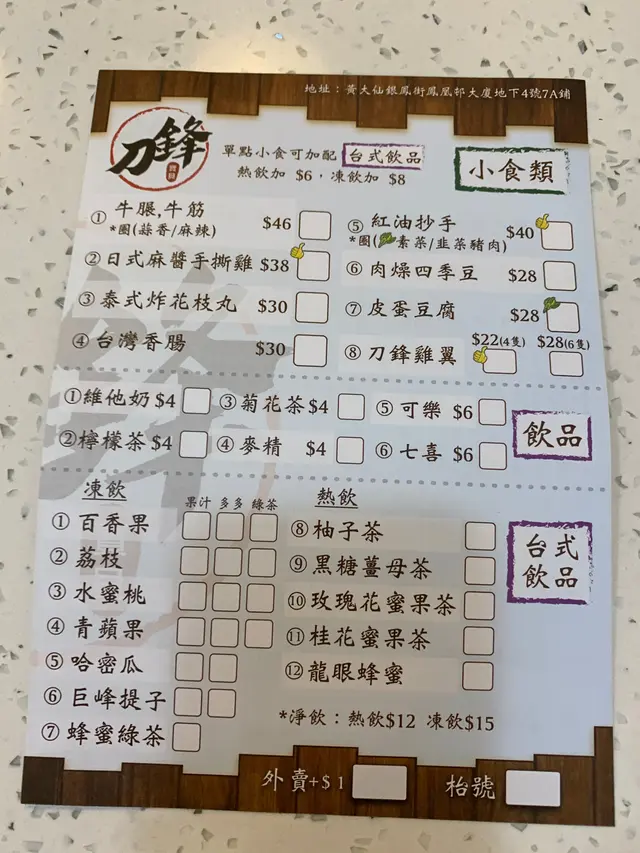 地址：黃大仙銀鳳街鳳凰邨大廈地下4號7A鋪
刀鋒
單點小食可加配 台式飲品
熱飲加 $6，凍飲加 $8
小食類
① 牛脹,牛筋 $46
*圈(蒜香/麻辣)
② 日式麻醬手撕雞 $38
③ 泰式炸花枝丸 $30
④ 台灣香腸 $30
⑤ 紅油抄手 $40
*圈(素菜/韭菜豬肉)
⑥ 肉燥四季豆 $28
⑦ 皮蛋豆腐 $28
⑧ 刀鋒雞翼 $22(4隻) $28(6隻)
①維他奶 $4
②檸檬茶 $4
③菊花茶 $4
④ 麥精 $4
⑤ 可樂 $6
⑥ 七喜 $6
飲品
凍飲
果汁 多多 綠茶
① 百香果
② 荔枝
③ 水蜜桃
④ 青蘋果
⑤ 哈密瓜
⑥ 巨峰提子
⑦ 蜂蜜綠茶
熱飲
⑧ 柚子茶
⑨ 黑糖薑母茶
⑩ 玫瑰花蜜果茶
⑪ 桂花蜜果茶
⑫ 龍眼蜂蜜
*淨飲：熱飲$12 凍飲$15
台式
飲品
外賣+$1
枱號